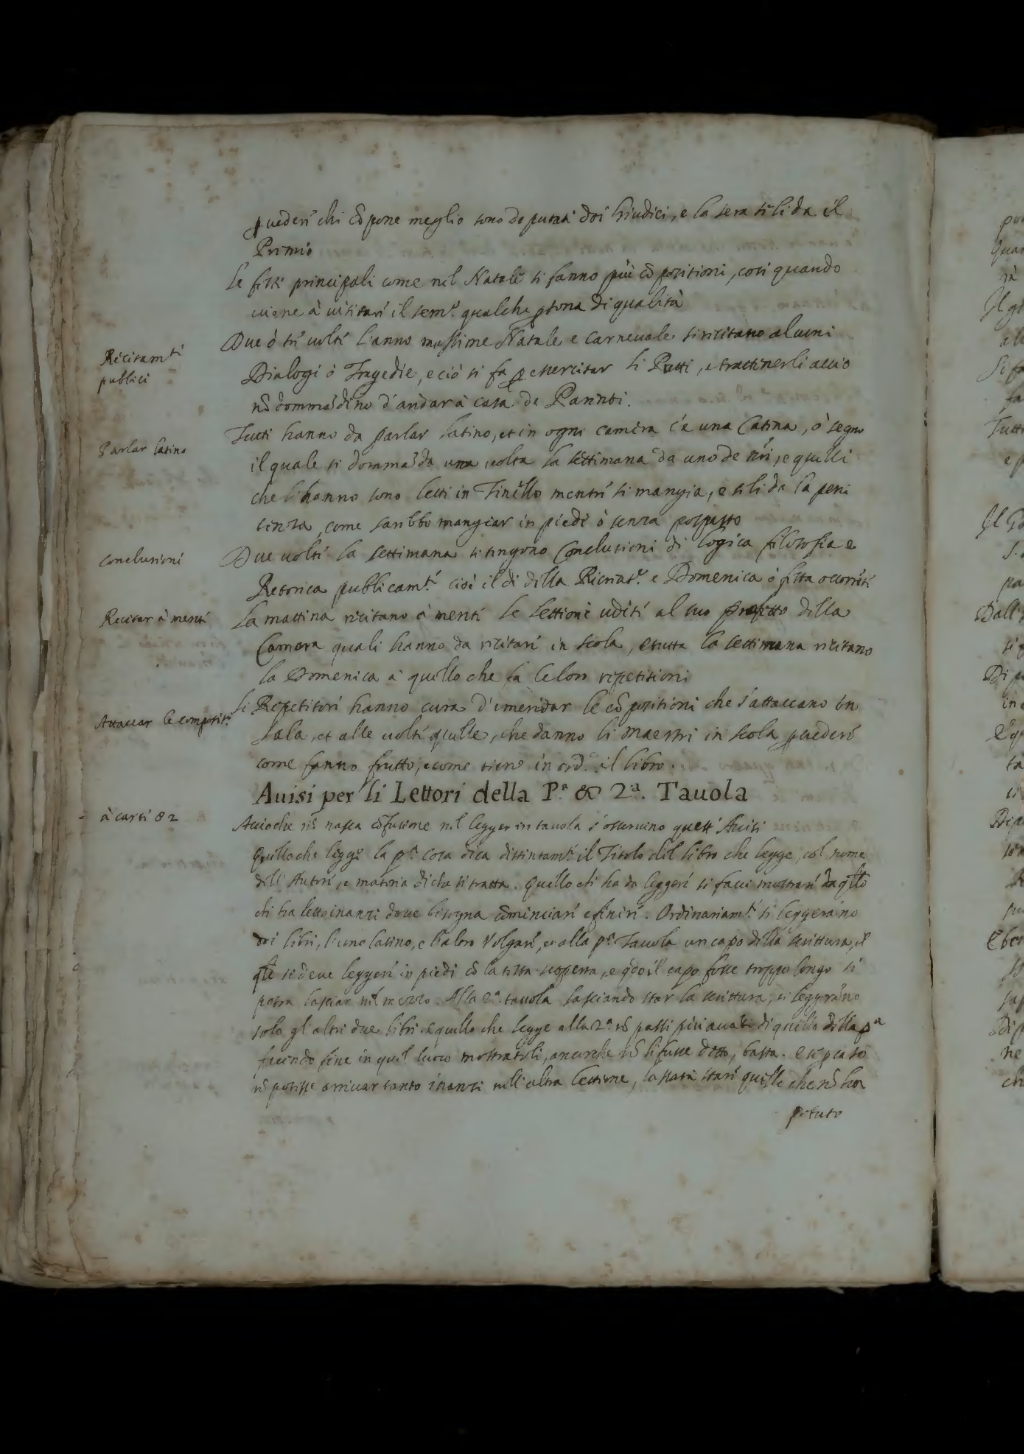 ꝑ ueder chi cōpone meglio sono deputati doi Giudici, e la sera si li da il
Premio
Le feste principali come nel Natale si fanno piu cōpositioni, cosi quando
uiene à uisitare il sem.º qualche ꝑsona di qualità
Recitamti
publici
Due ò tre uolte l'anno massime Natale e Carneuale si recitano alcuni
Dialogi ò Tragedie, e ciò si fa ꝑ essercitar li Putti, e trattenerli acciò
nō dommādino d'andar à casa de Parenti.
Parlar latino
Tutti hanno da parlar latino, et in ogni camera c'è una Catina, ò segno
il quale si dommāda una uolta la settimana da uno de nri, e quelli
che l'hanno sono letti in Tinello mentre si mangia, e si li da la peni
tenza, come sarebbe mangiar in piedi ò senza pospasto
Conclusioni
Due uolte la settimana si tengono Conclusioni di logica filosofia e
Retorica publicamte cioè il dì della Recreatne e Domenica ò festa occorrēte
Recitar à mente
La mattina recitano à mente le lettioni udite al suo Prefetto della
Camera quali hanno da recitare in scola, e tutta la settimana recitano
la Domenica à quello che fa le loro repetitioni
Attaccar le compositni
Li Repetitori hanno cura d'emendar le cōpositioni che s'attaccano in
sala, et alle uolte quelle, che danno li maestri in scola ꝑ uedere
come fanno frutto, e come tiene in ord.e il libro.
Auisi per li Lettori della P.a & 2.a Tauola
à carte 82
Acioche nō nasca cōfusione nel legger in tauola s'osseruino questi Auisi
Quello che legge la pa cosa dica distintamte il Titolo del libro che legge col nome
dell'Autore, e materia di che si tratta. Quello che ha da leggere si facci mostrare da qllo
che ha letto inanzi doue bisogna cōminciare e finire. Ordinariamte si leggerāno
doi libri, l'uno latino, e l'altro Volgare, et alla pa Tauola un capo della scrittura, il
qle si deue leggere in piedi cō la testa scoperta, e qdo il capo fosse troppo longo si
potra lasciar nel mezzo. Alla 2a tauola lasciando star la scrittura, si leggerāno
solo gl'altri due libri, e quello che legge alla 2a nō passi piu auāti di quella della pa
facendo fine in quel luoco mostratoli, ancorche nō li fusse detto, basta. e se ꝑ caso
nō potesse arriuar tanto inanzi nell'altra lettione, lasciarà stare quello che nō ha
potuto